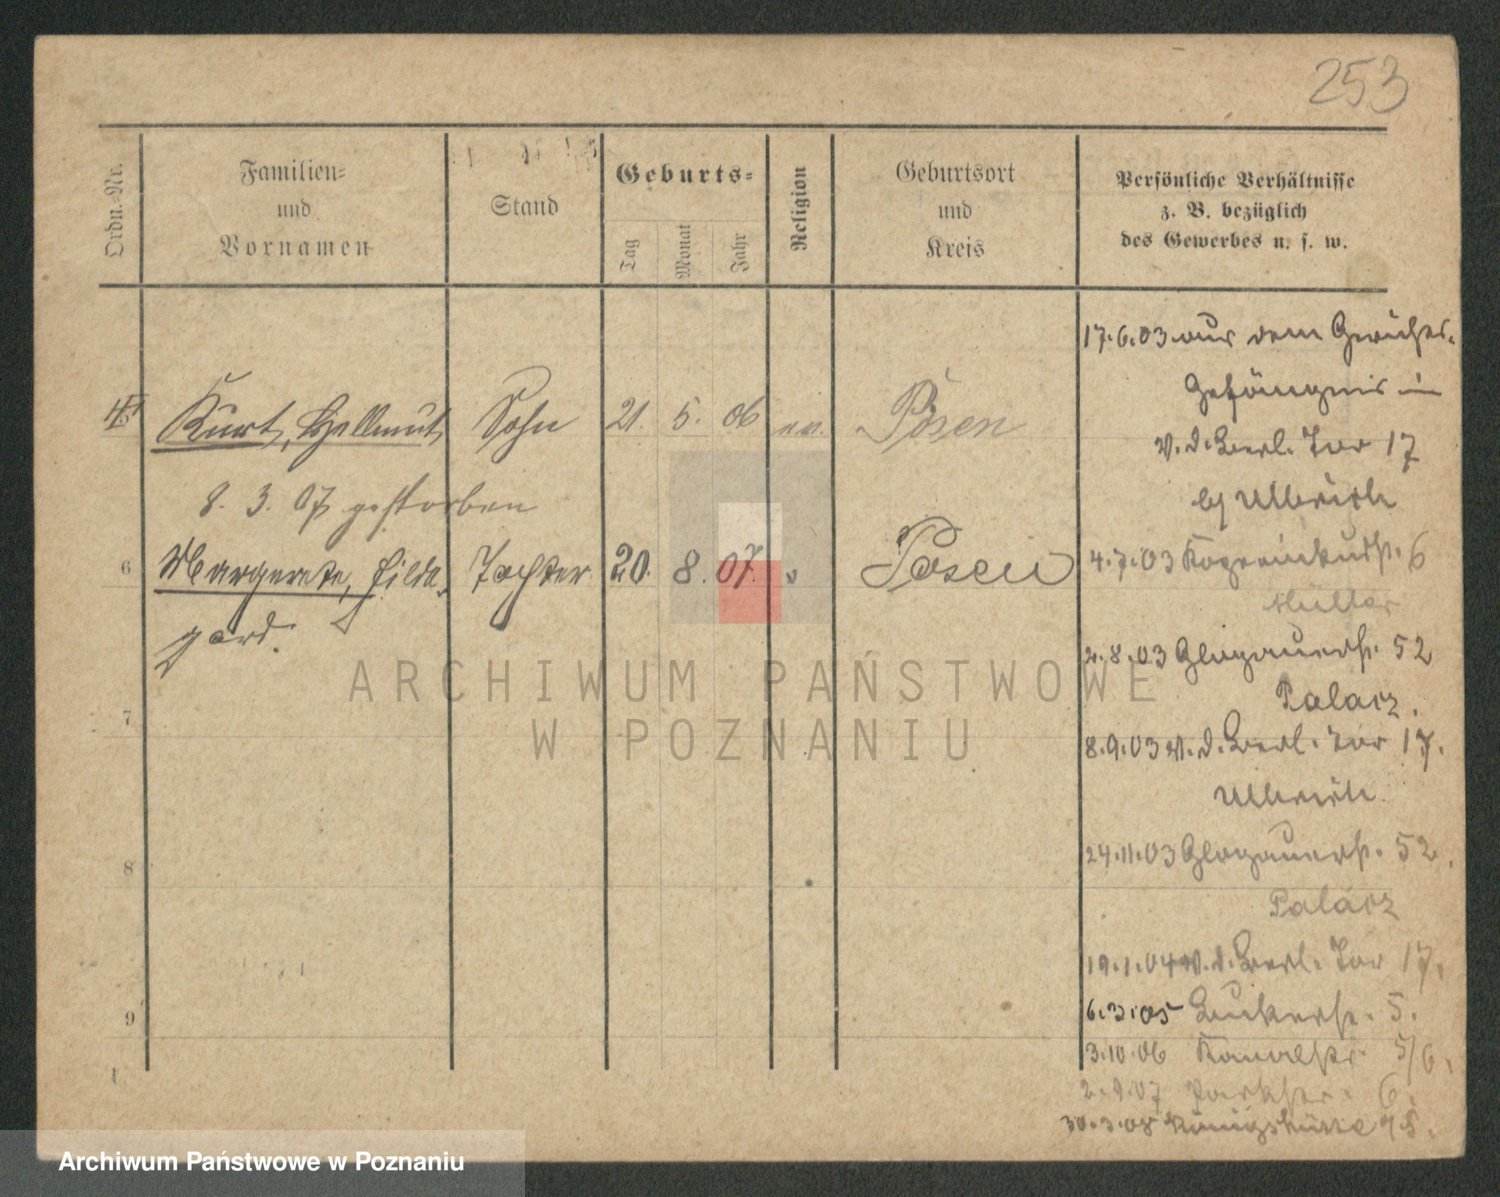 253
Ordn.-Nr.
Familien-
und
Vornamen
Stand
Geburts-
Tag
Monat
Jahr
Religion
Geburtsort
und
Kreis
Persönliche Verhältnisse
z. B. bezüglich
des Gewerbes u. s. w.
17.6.03 aus dem Gerichts-
Gefängnis in
v. d. Berl. Tor 17
bj Ulbrich
Kurt, Hellmut, Sohn 21. 5. 06 ev. Posen
8. 3. 07 gestorben
6 Margarete, Hilde- Tochter 20. 8. 07. " Posen
gard.
4.7.03 6
Müller
2.8.03 Glogauerstr. 52
Palacz.
7
8.9.03 v. d. Berl. Tor 17.
Ulbrich.
8
24.11.03 Glogauerstr. 52.
Palacz
19.1.04 v. d. Berl. Tor 17.
9
6.3.05 5.
3.10.06 Kanalstr. 5/6.
2.9.07 Parkstr. 6.
30.3.08 Königshütte
ARCHIWUM PAŃSTWOWE
W POZNANIU
Archiwum Państwowe w Poznaniu